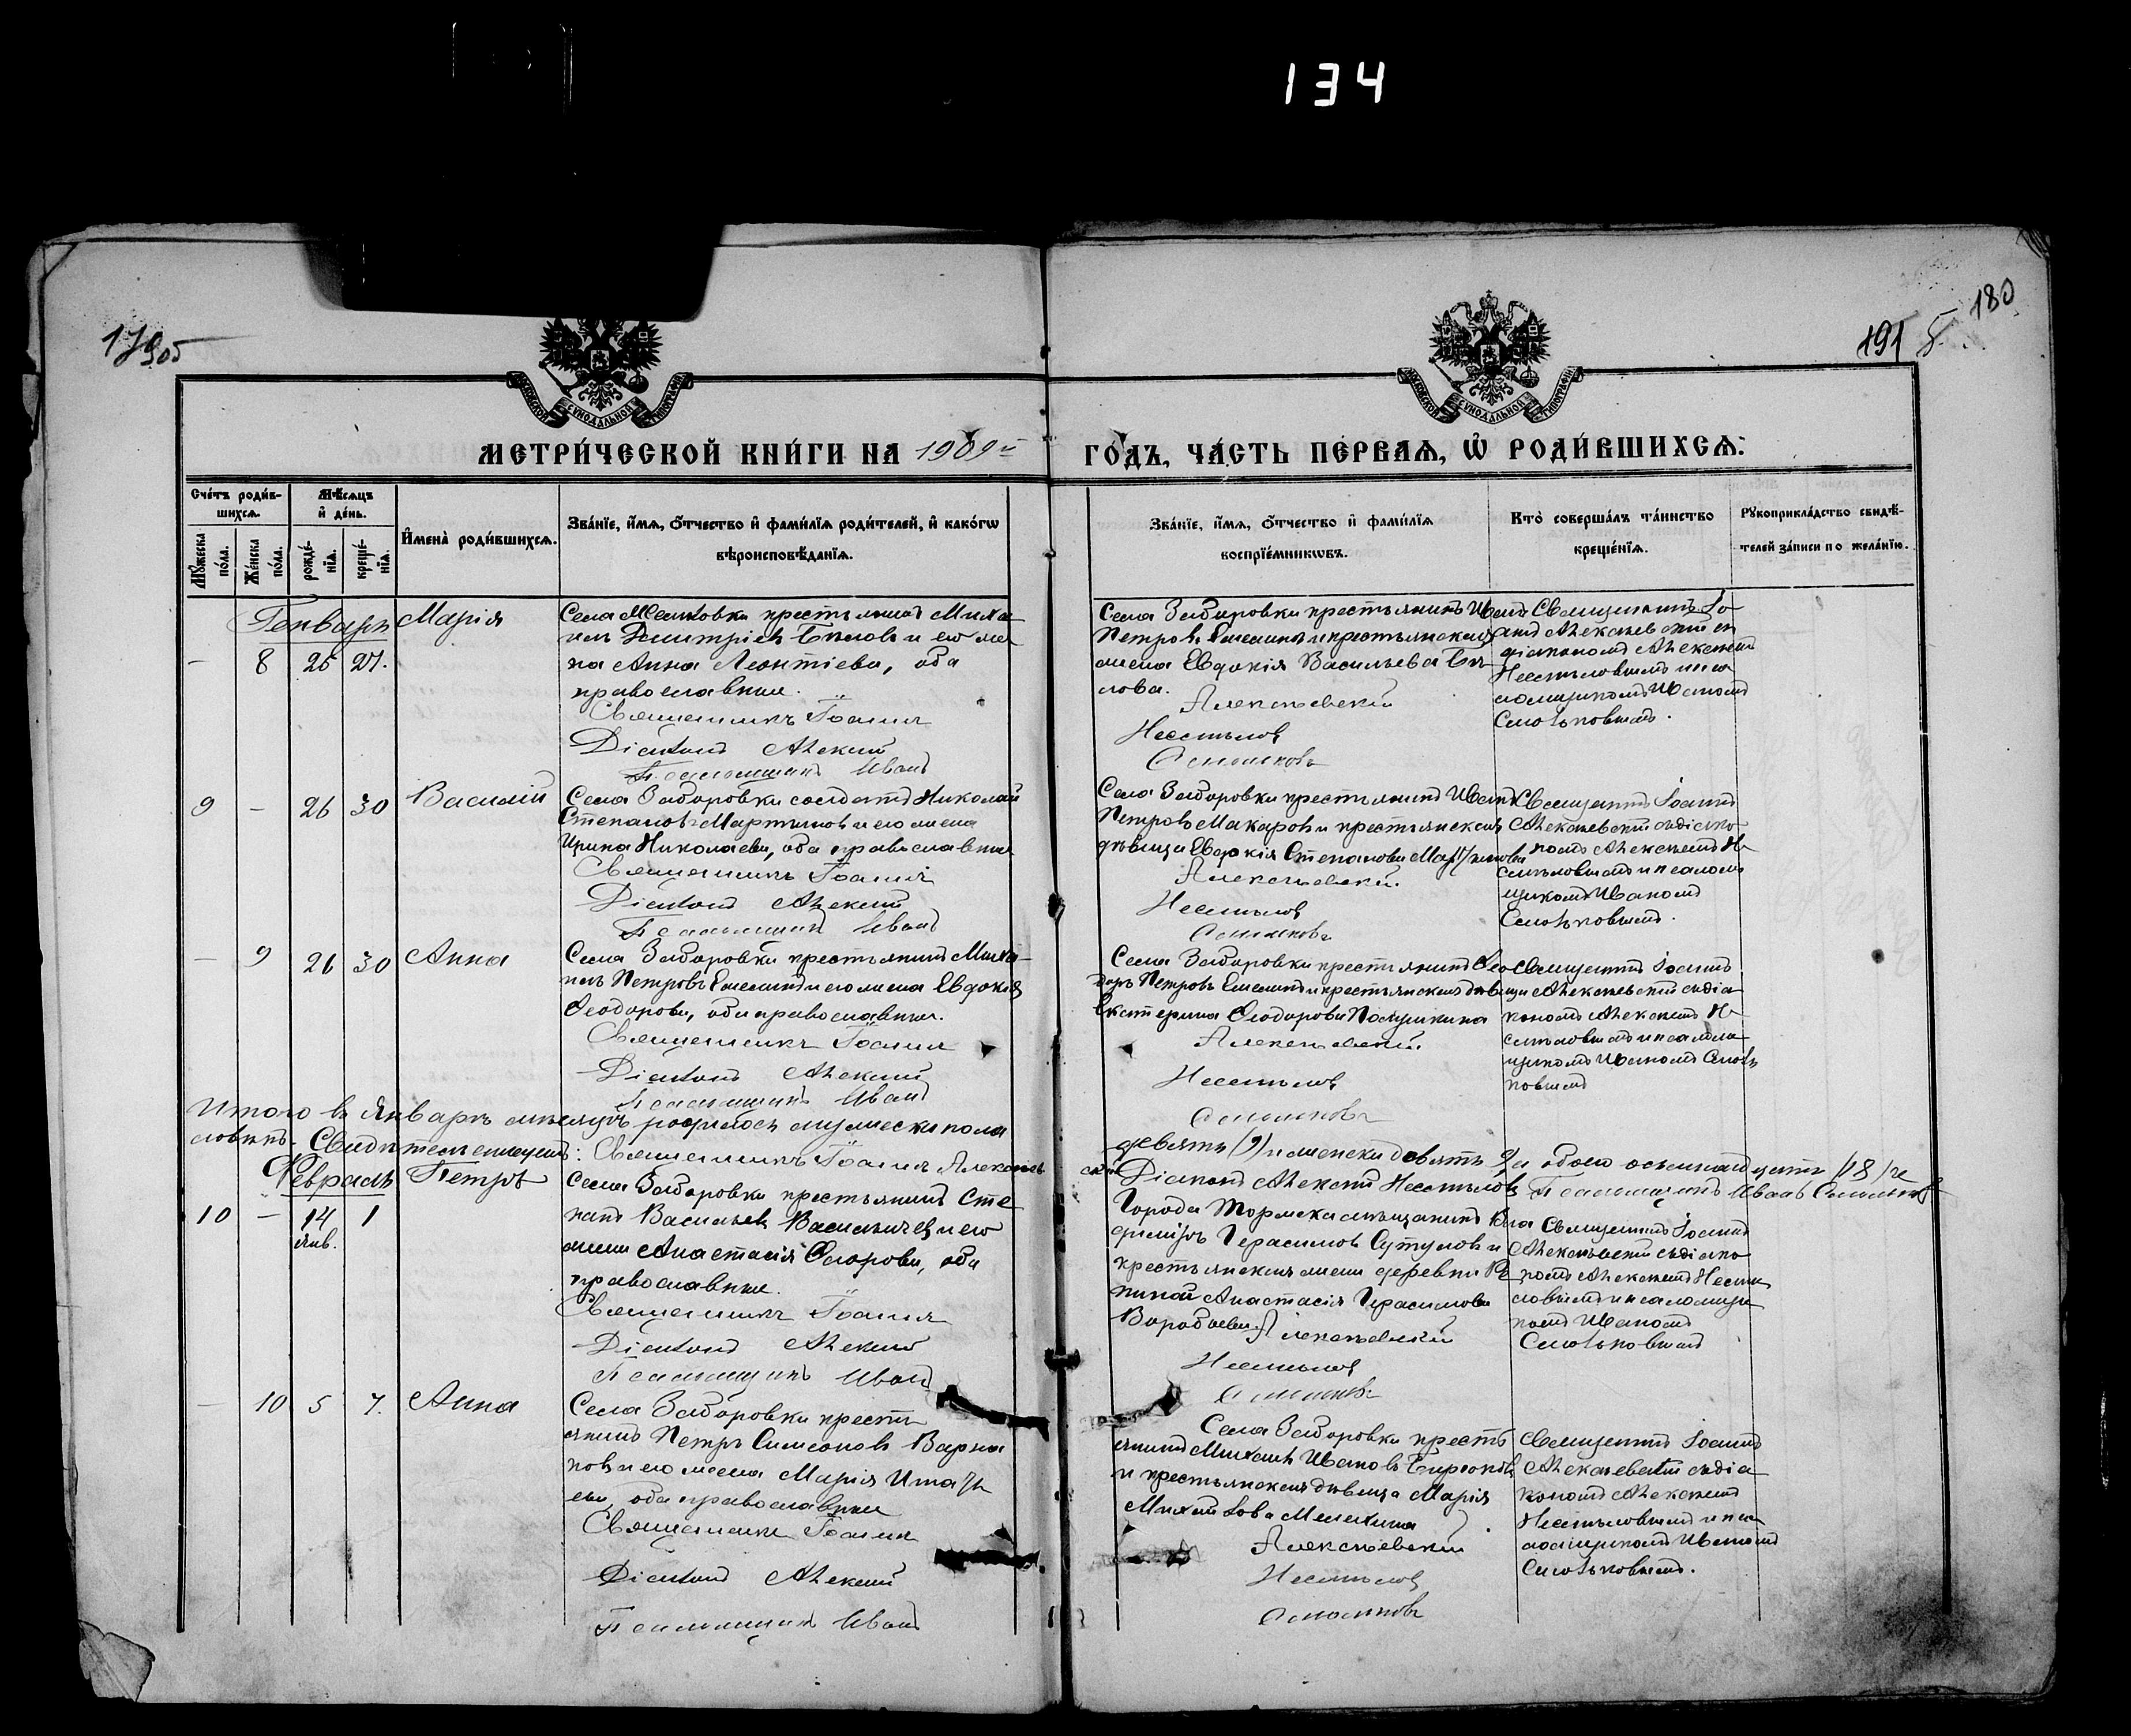 134
180
191
МЕТРИ́ЧЕСКОЙ КНИ́ГИ НА 1909й ГО́ДЪ, ЧА́СТЬ ПЕ́РВАѦ, Ѡ҆ РОДИ́ВШИХСѦ:
Сче́тъ роди́в-
шихсѧ.
Мѣ́сѧцъ
и҆ де́нь.
Мꙋ́жеска по́ла.
Же́нска по́ла.
рожде́-нїѧ.
креще́-нїѧ.
И҆мена̀ роди́вшихсѧ.
Зва́нїе, и҆́мѧ, ѻ҆́тчество и҆ фами́лїѧ роди́телей, и҆ како́гѡ
вѣроисповѣ́данїѧ.
Зва́нїе, и҆́мѧ, ѻ҆́тчество и҆ фами́лїѧ
воспрїе́мникѡвъ.
Кто̀ соверша́лъ та́инство
креще́нїѧ.
Рꙋкоприкла́дство свидѣ́-
телей за́писи по жела́нїю.
Генварь
- 8 25 27.
Марія
крестьянинъ Миха
илъ Димитріевъ Бѣловъ и его же
на Анна Леонтіева, оба
православные.
Священникъ Іоаннъ
Діаконъ Алексій
Псаломщикъ Иванъ
Села Заборовки крестьянинъ Иванъ
Петровъ Емелинъ и крестьянская
жена Евдокія Васильева Бѣ
лова.
Алексѣевскій
Несмѣловъ
Смольковъ
Священникъ Іо
анномъ Алексѣевскій съ
діакономъ Алексѣемъ
Несмѣловымъ и пса
ломщикомъ Иваномъ
Смольковымъ.
9 - 26 30
Василій
Села Заборовки солдатъ Николай
Степановъ Мартыновъ и его жена
Ирина Николаева, оба православные
Священникъ Іоаннъ
Діаконъ Алексій
Псаломщикъ Иванъ
Села Заборовки крестьянинъ Иванъ
Петровъ Макаровъ и крестьянская
дѣвица Евдокія Степанова Мартынова
Алексѣевскій.
Несмѣловъ
Смольковъ
Священникъ Іоаннъ
Алексѣевскій съ діако
номъ Алексѣемъ Не
смѣловымъ и псалом
щикомъ Иваномъ
Смольковымъ.
- 9 26 30
Анна
Села Заборовки крестьянинъ Миха-
илъ Петровъ Емелинъ и его жена Евдокія
Ѳеодорова, оба православные.
Священникъ Іоаннъ
Діаконъ Алексій
Псаломщикъ Иванъ
Села Заборовки крестьянинъ Ѳео
доръ Петровъ Емелинъ и крестьянская дѣвица
Екатерина Ѳеодорова
Алексѣевскій
Несмѣловъ
Смольковъ
Священникъ Іоаннъ
Алексѣевскій съ діа
кономъ Алексѣемъ Не
смѣловымъ и псалом
щикомъ Иваномъ Смоль
ковымъ
Итого въ Январѣ мѣсяцѣ родилось мужеска пола
девять (9) и женска девять 9, а обоего осьмнадцать (18) че
ловѣкъ. Свидѣтельствуемъ: Священникъ Іоаннъ Алексѣев
скій Діаконъ Алексій Несмѣловъ Псаломщикъ Иванъ Смольковъ
Февраль
10 - 14 1
Янв.
Петръ
Села Заборовки крестьянинъ Сте
панъ Васильевъ и его
жена Анастасія Егорова, оба
православные.
Священникъ Іоаннъ
Діаконъ Алексій
Псаломщикъ Иванъ
Города мѣщанинъ Вла
диміръ Герасимовъ Сутуловъ и
крестьянская жена деревни Рѣ
пиной Анастасія Герасимова
Воробьева.
Алексѣевскій
Несмѣловъ
Смольковъ
Священникъ Іоаннъ
Алексѣевскій съ діако
номъ Алексѣемъ Несмѣ
ловымъ и псаломщи
комъ Иваномъ
Смольковымъ
- 10 5 7.
Анна
Села Заборовки кресть
янинъ Петръ Симеоновъ
и его жена Марія Игнать
ева, оба православные
Священникъ Іоаннъ
Діаконъ Алексій
Псаломщикъ Иванъ
Села Заборовки кресть
янинъ Михаилъ Ивановъ Бирюковъ
и крестьянская дѣвица Марія
Михайлова
Алексѣевскій
Несмѣловъ
Смольковъ
Священникъ Іоаннъ
Алексѣевскій съ діа
кономъ Алексѣемъ
Несмѣловымъ и пса
ломщикомъ Иваномъ
Смольковымъ.